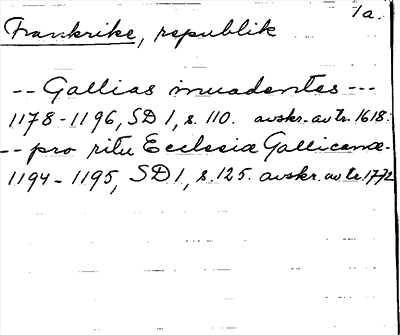 1a.
Frankrike, republik
-- Gallias inuadentes ---
1178-1196, SD 1, s. 110. avskr. av tr. 1618.
-- pro ritu Ecclesiæ Gallicanæ.
1194-1195, SD 1, s. 125. avskr. av tr. 1772